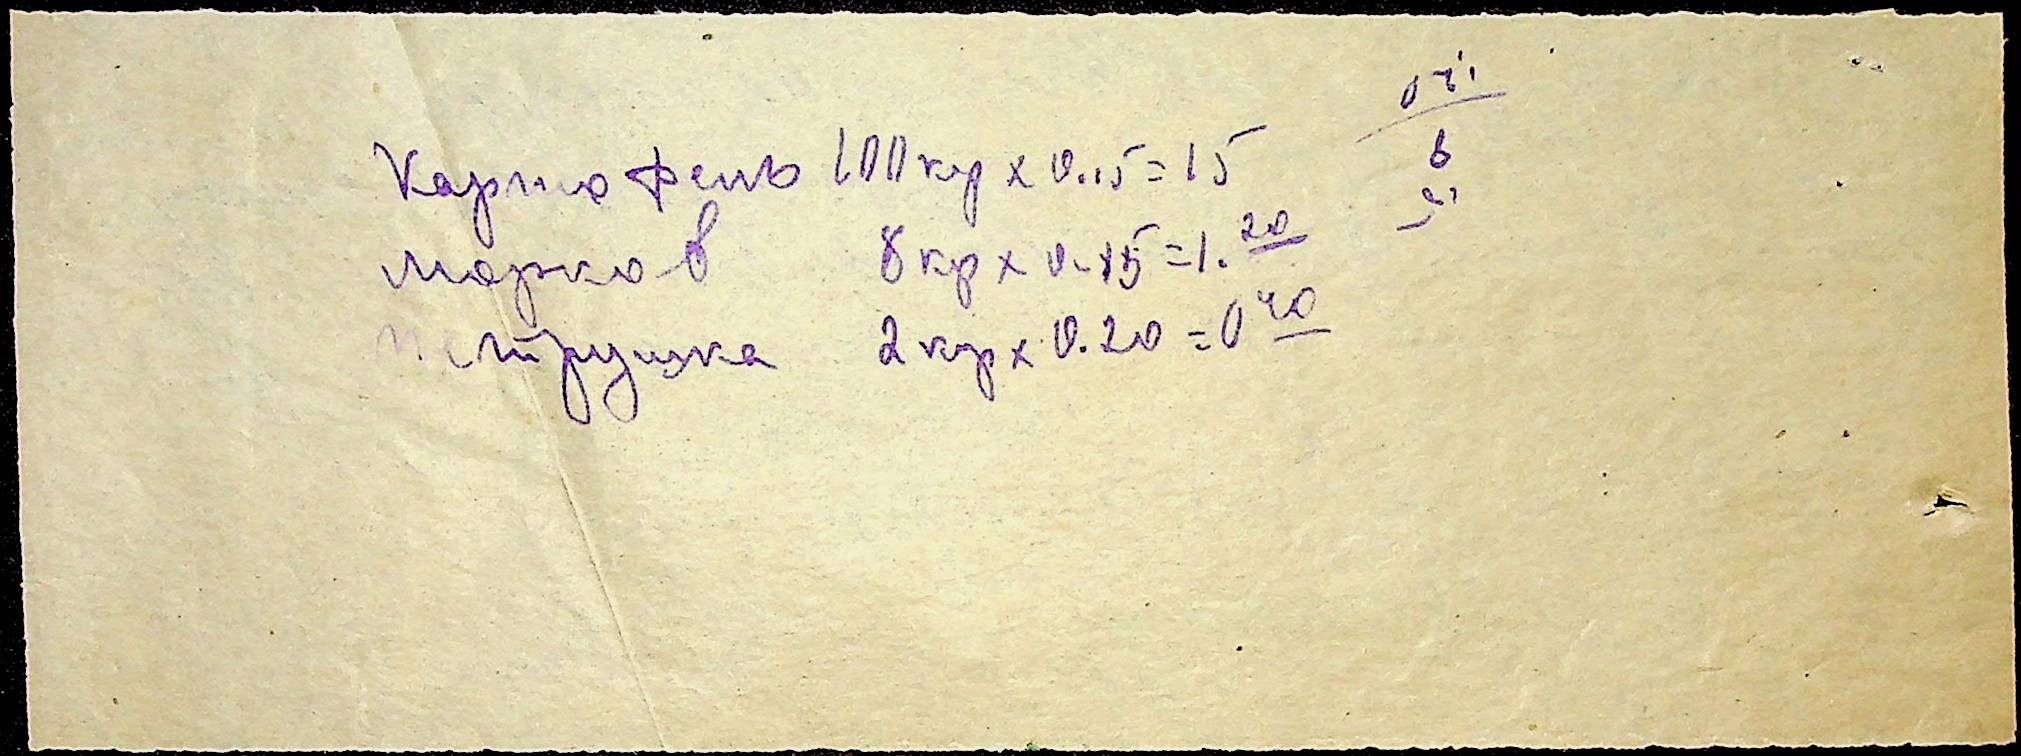 Картофель 100 кгр x 0.15 = 15
Морков 8 кгр x 0.15 = 1.20
петрушка 2 кгр x 0.20 = 0 40